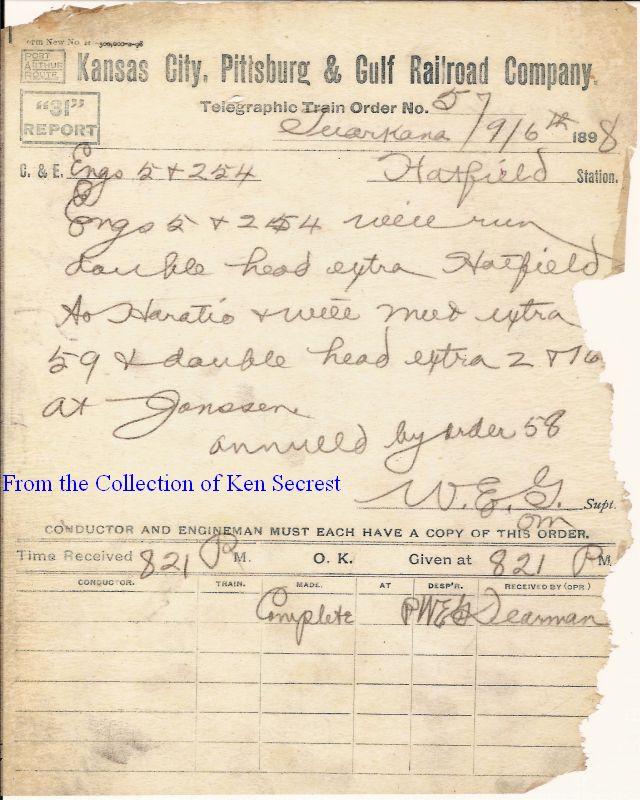 Form New No. 31 500,000-2-98
PORT ARTHUR ROUTE
Kansas City, Pittsburg & Gulf Railroad Company.
"31" REPORT
Telegraphic Train Order No. 57
Texarkana 9/6th 1898
C. & E. Engs 5 & 254 Hatfield Station.
Engs 5 & 254 will run
double head extra Hatfield
to Horatio & will meet extra
59 & double head extra 2 & 76
at Janssen
annulled by order 58
From the Collection of Ken Secrest
W. E. G. Supt.
om
CONDUCTOR AND ENGINEMAN MUST EACH HAVE A COPY OF THIS ORDER.
Time Received 821 P M. O. K. Given at 821 P M
CONDUCTOR. TRAIN. MADE. AT DESP'R. RECEIVED BY (OPR.)
Complete Dearman